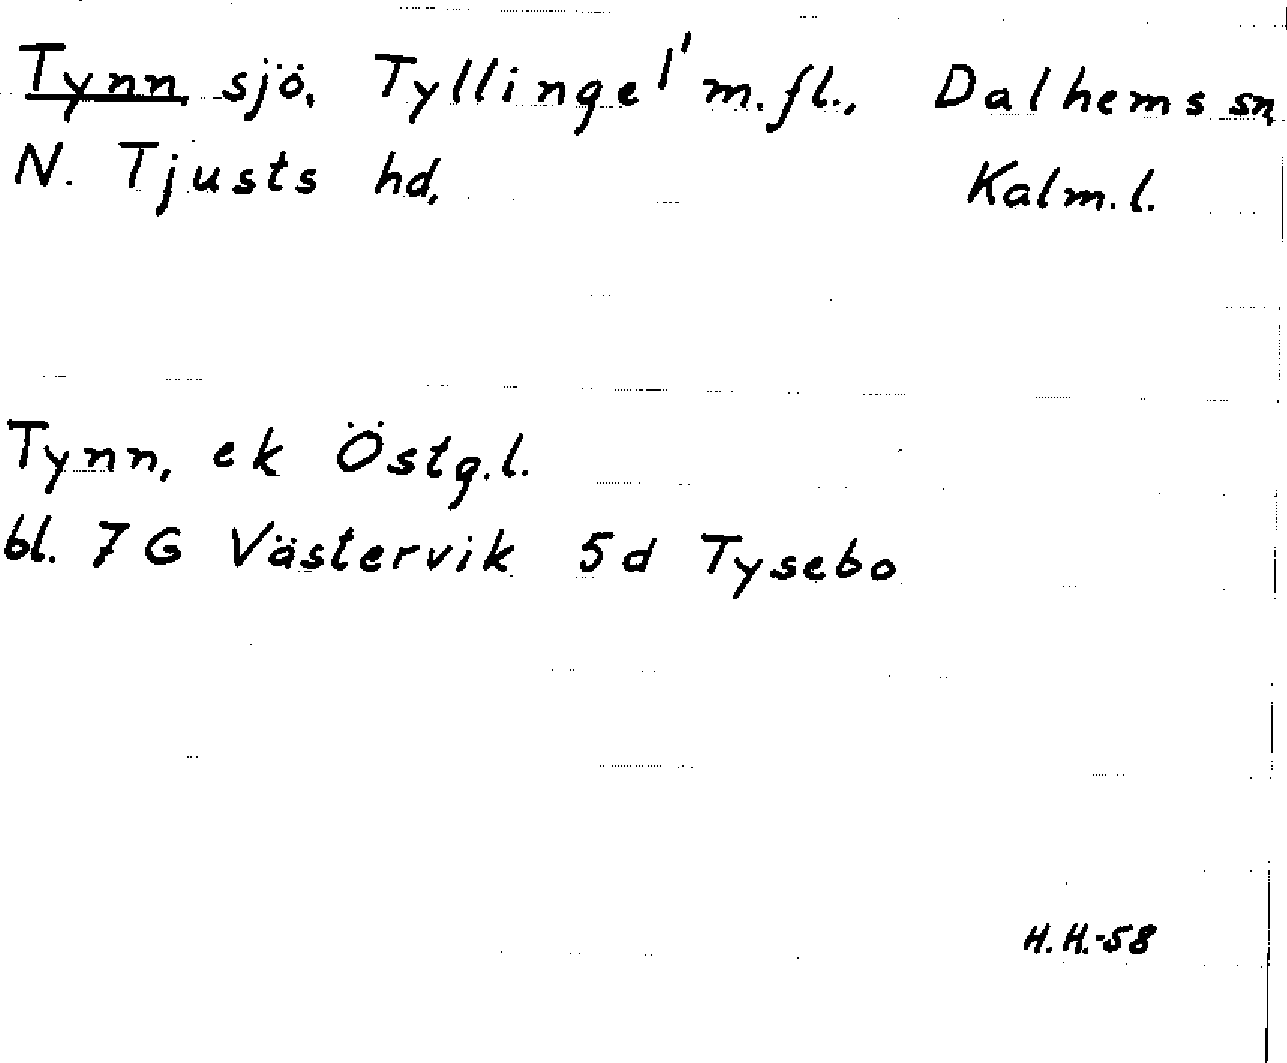 Tynn, sjö, Tyllinge 1¹ m.fl., Dalhems sn,
N. Tjusts hd, Kalm.l.
Tynn, ek Östg.l.
bl. 7 G Västervik 5d Tysebo
H.H.-58